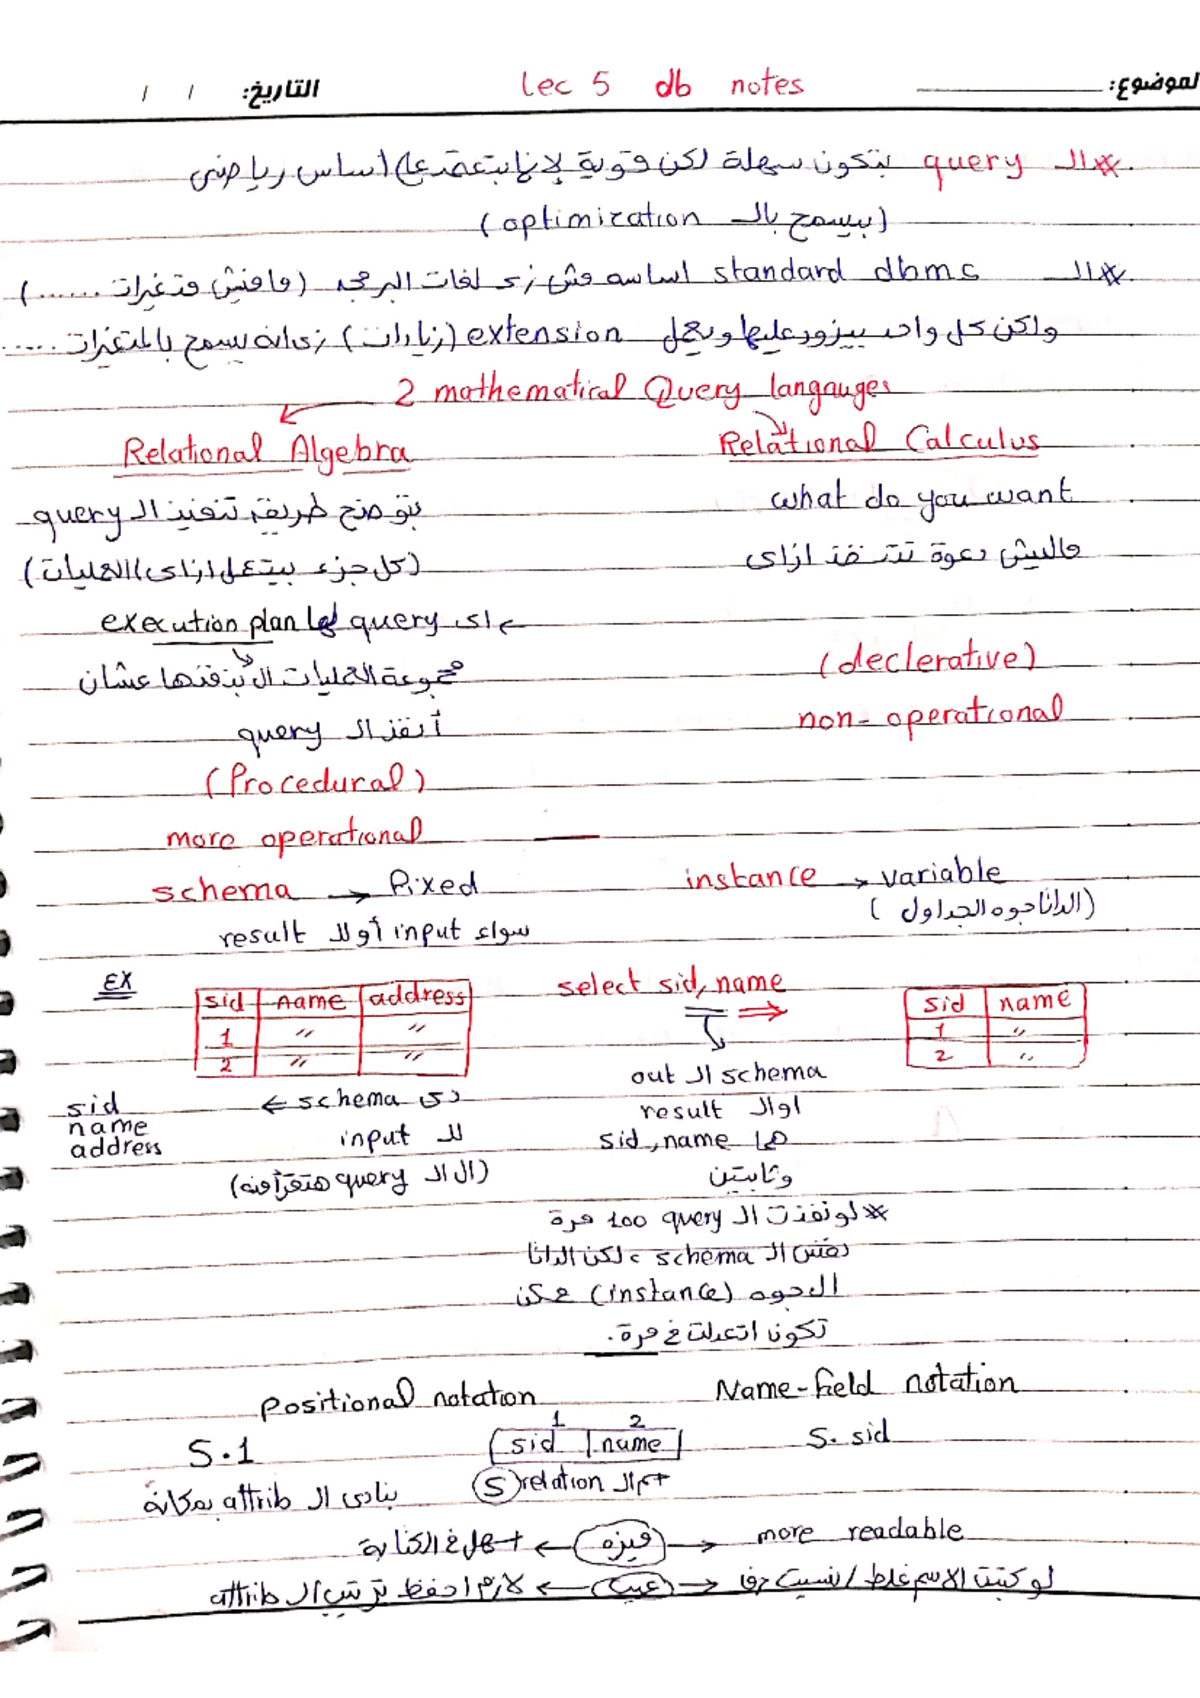 الموضوع: Lec 5 db notes التاريخ: / /
* الـ query بتكون سهلة لكن قوية لإنها بتعتمد على أساس رياضى
(بيسمح بالـ optimization)
* الـ standard dbms اساسه مش زى لغات البرمجه (مافيش متغيرات ......)
ولكن كل واحد بيزود عليها ويعمل extension (زيادات) زى انه يسمح بالمتغيرات .....
2 mathematical Query langauges
Relational Algebra
Relational Calculus
بتوضح طريقة تنفيذ الـ query
(كل جزء بيتعمل ازاى) (العمليات)
← اى query لها execution plan
مجموعة العمليات الـ بنفذها عشان
أنفذ الـ query
(Procedural)
more operational
what do you want
ماليش دعوة تتنفذ ازاى
(declerative)
non-operational
schema → fixed
سواء input أو لا result
instance → variable
(الداتا جوه الجداول)
EX
sid name address
1 〃 〃
2 〃 〃
select sid, name
sid name
1 〃
2 〃
دى schema ←
للـ input
(الـ الـ query هتقرأ منه)
sid
name
address
out الـ schema
اوالـ result
هما sid, name
وثابتين
* لو نفذت الـ query 100 مرة
نفس الـ schema ، لكن الداتا
الـ جوه (instance) ممكن
تكون اتعدلت فى مرة.
Positional notation
Name-field notation
1 2
sid name
S.1
S. sid
بنادى الـ attrib بمكانه
relation الـ S
more readable ← ميزه → سهل فى الكتابة
لو كتبت الاسم غلط / نسيت حرف ← عيب → لازم احفظ ترتيب الـ attrib